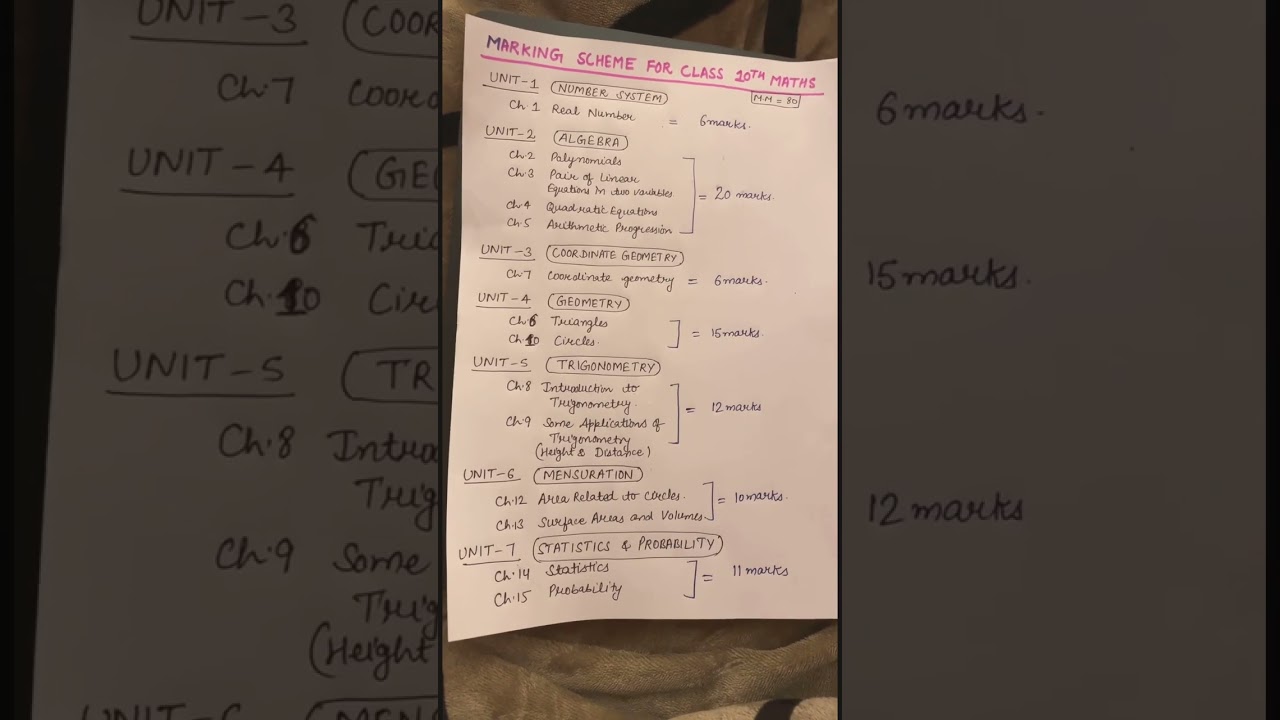 MARKING SCHEME FOR CLASS 10TH MATHS
M.M = 80
UNIT-1 NUMBER SYSTEM
Ch. 1 Real Number = 6 marks.
UNIT-2 ALGEBRA
Ch.2 Palynomials
Ch.3 Pair of Linear
Equations in two variables
Ch.4 Quadratic Equations
Ch.5 Arithmetic Progression
= 20 marks.
UNIT-3 COORDINATE GEOMETRY
Ch.7 Coordinate geometry = 6 marks.
UNIT-4 GEOMETRY
Ch.6 Triangles
Ch.10 Circles.
= 15 marks.
UNIT-5 TRIGONOMETRY
Ch.8 Introduction to
Trigonometry.
Ch.9 Some Applications of
Trigonometry
(Height & Distance)
= 12 marks
UNIT-6 MENSURATION
Ch.12 Area Related to circles.
Ch.13 Surface Areas and Volumes
= 10 marks.
UNIT-7 STATISTICS & PROBABILITY
Ch.14 Statistics
Ch.15 Probability
= 11 marks
UNIT-3 (COOR
Ch.7 Coord
UNIT-4 (GE
Ch.6 Tria
Ch.10 Circ
UNIT-5 (TR
Ch.8 Intro
Trig
Ch.9 Some
Trig
(Height
6 marks.
15 marks.
12 marks